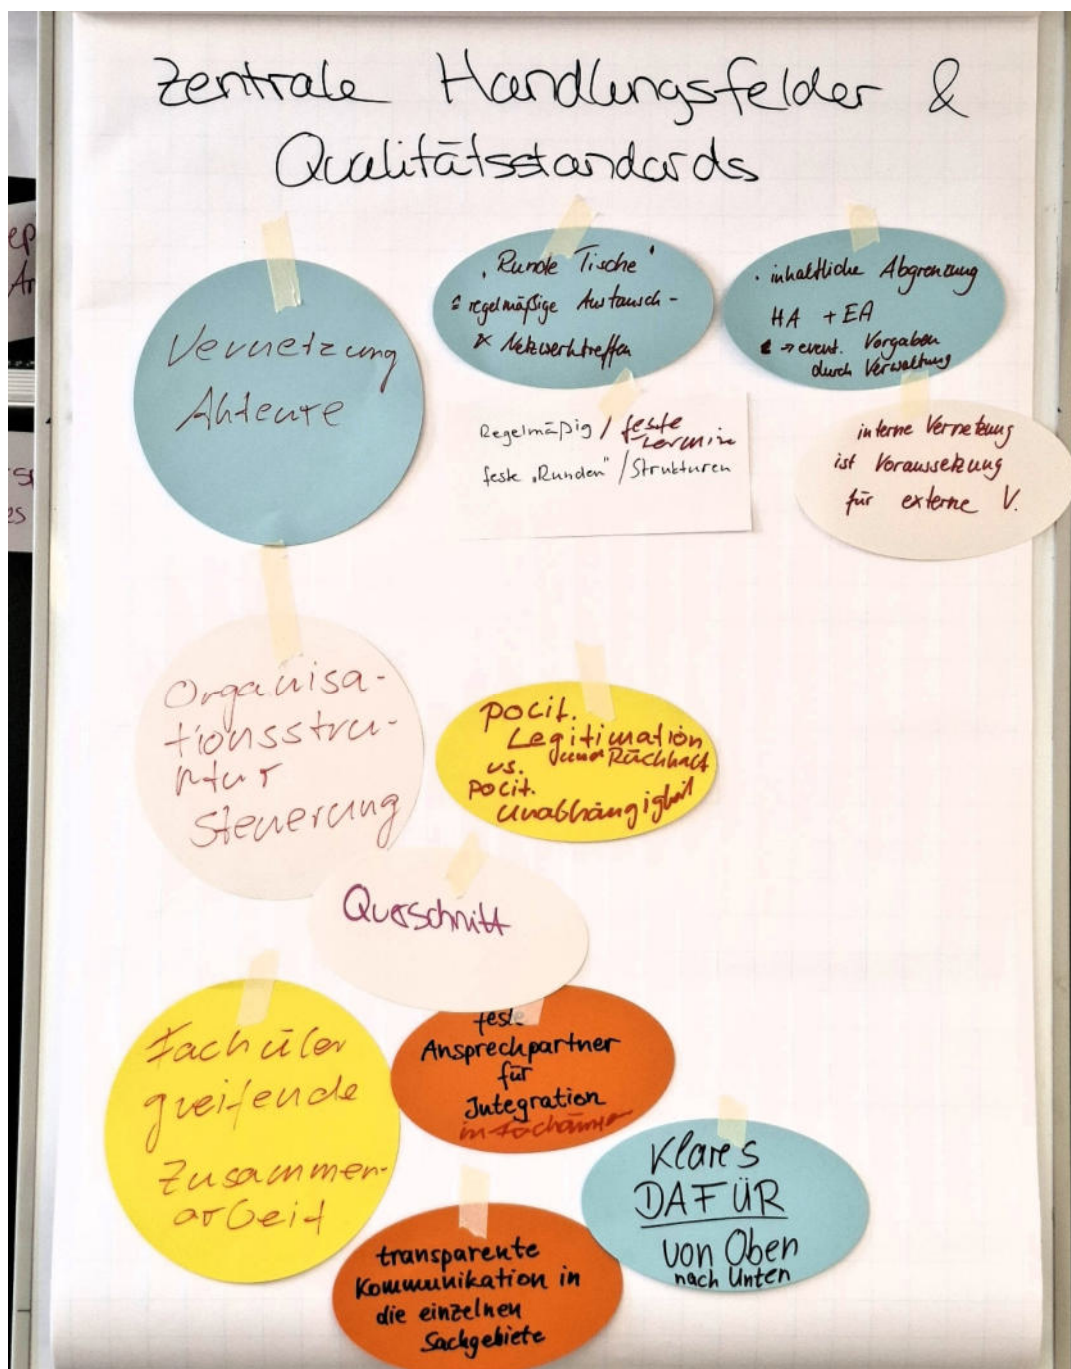 Zentrale Handlungsfelder &
Qualitätsstandards
Vernetzung
Akteure
"Runde Tische"
regelmäßige Austausch-
Netzwerktreffen
· inhaltliche Abgrenzung
HA + EA
→ event. Vorgaben
durch Verwaltung
Regelmäßig / feste
Termine
feste "Runden" / Strukturen
interne Vernetzung
ist Voraussetzung
für externe V.
Organisa-
tionsstru-
ktur
Steuerung
polit.
Legitimation
und Rückhalt
vs.
polit.
Unabhängigkeit
Querschnitt
Fachüber
greifende
Zusammen-
arbeit
feste
Ansprechpartner
für
Integration
in Fachämter
Klares
DAFÜR
von Oben
nach Unten
transparente
Kommunikation in
die einzelnen
Sachgebiete